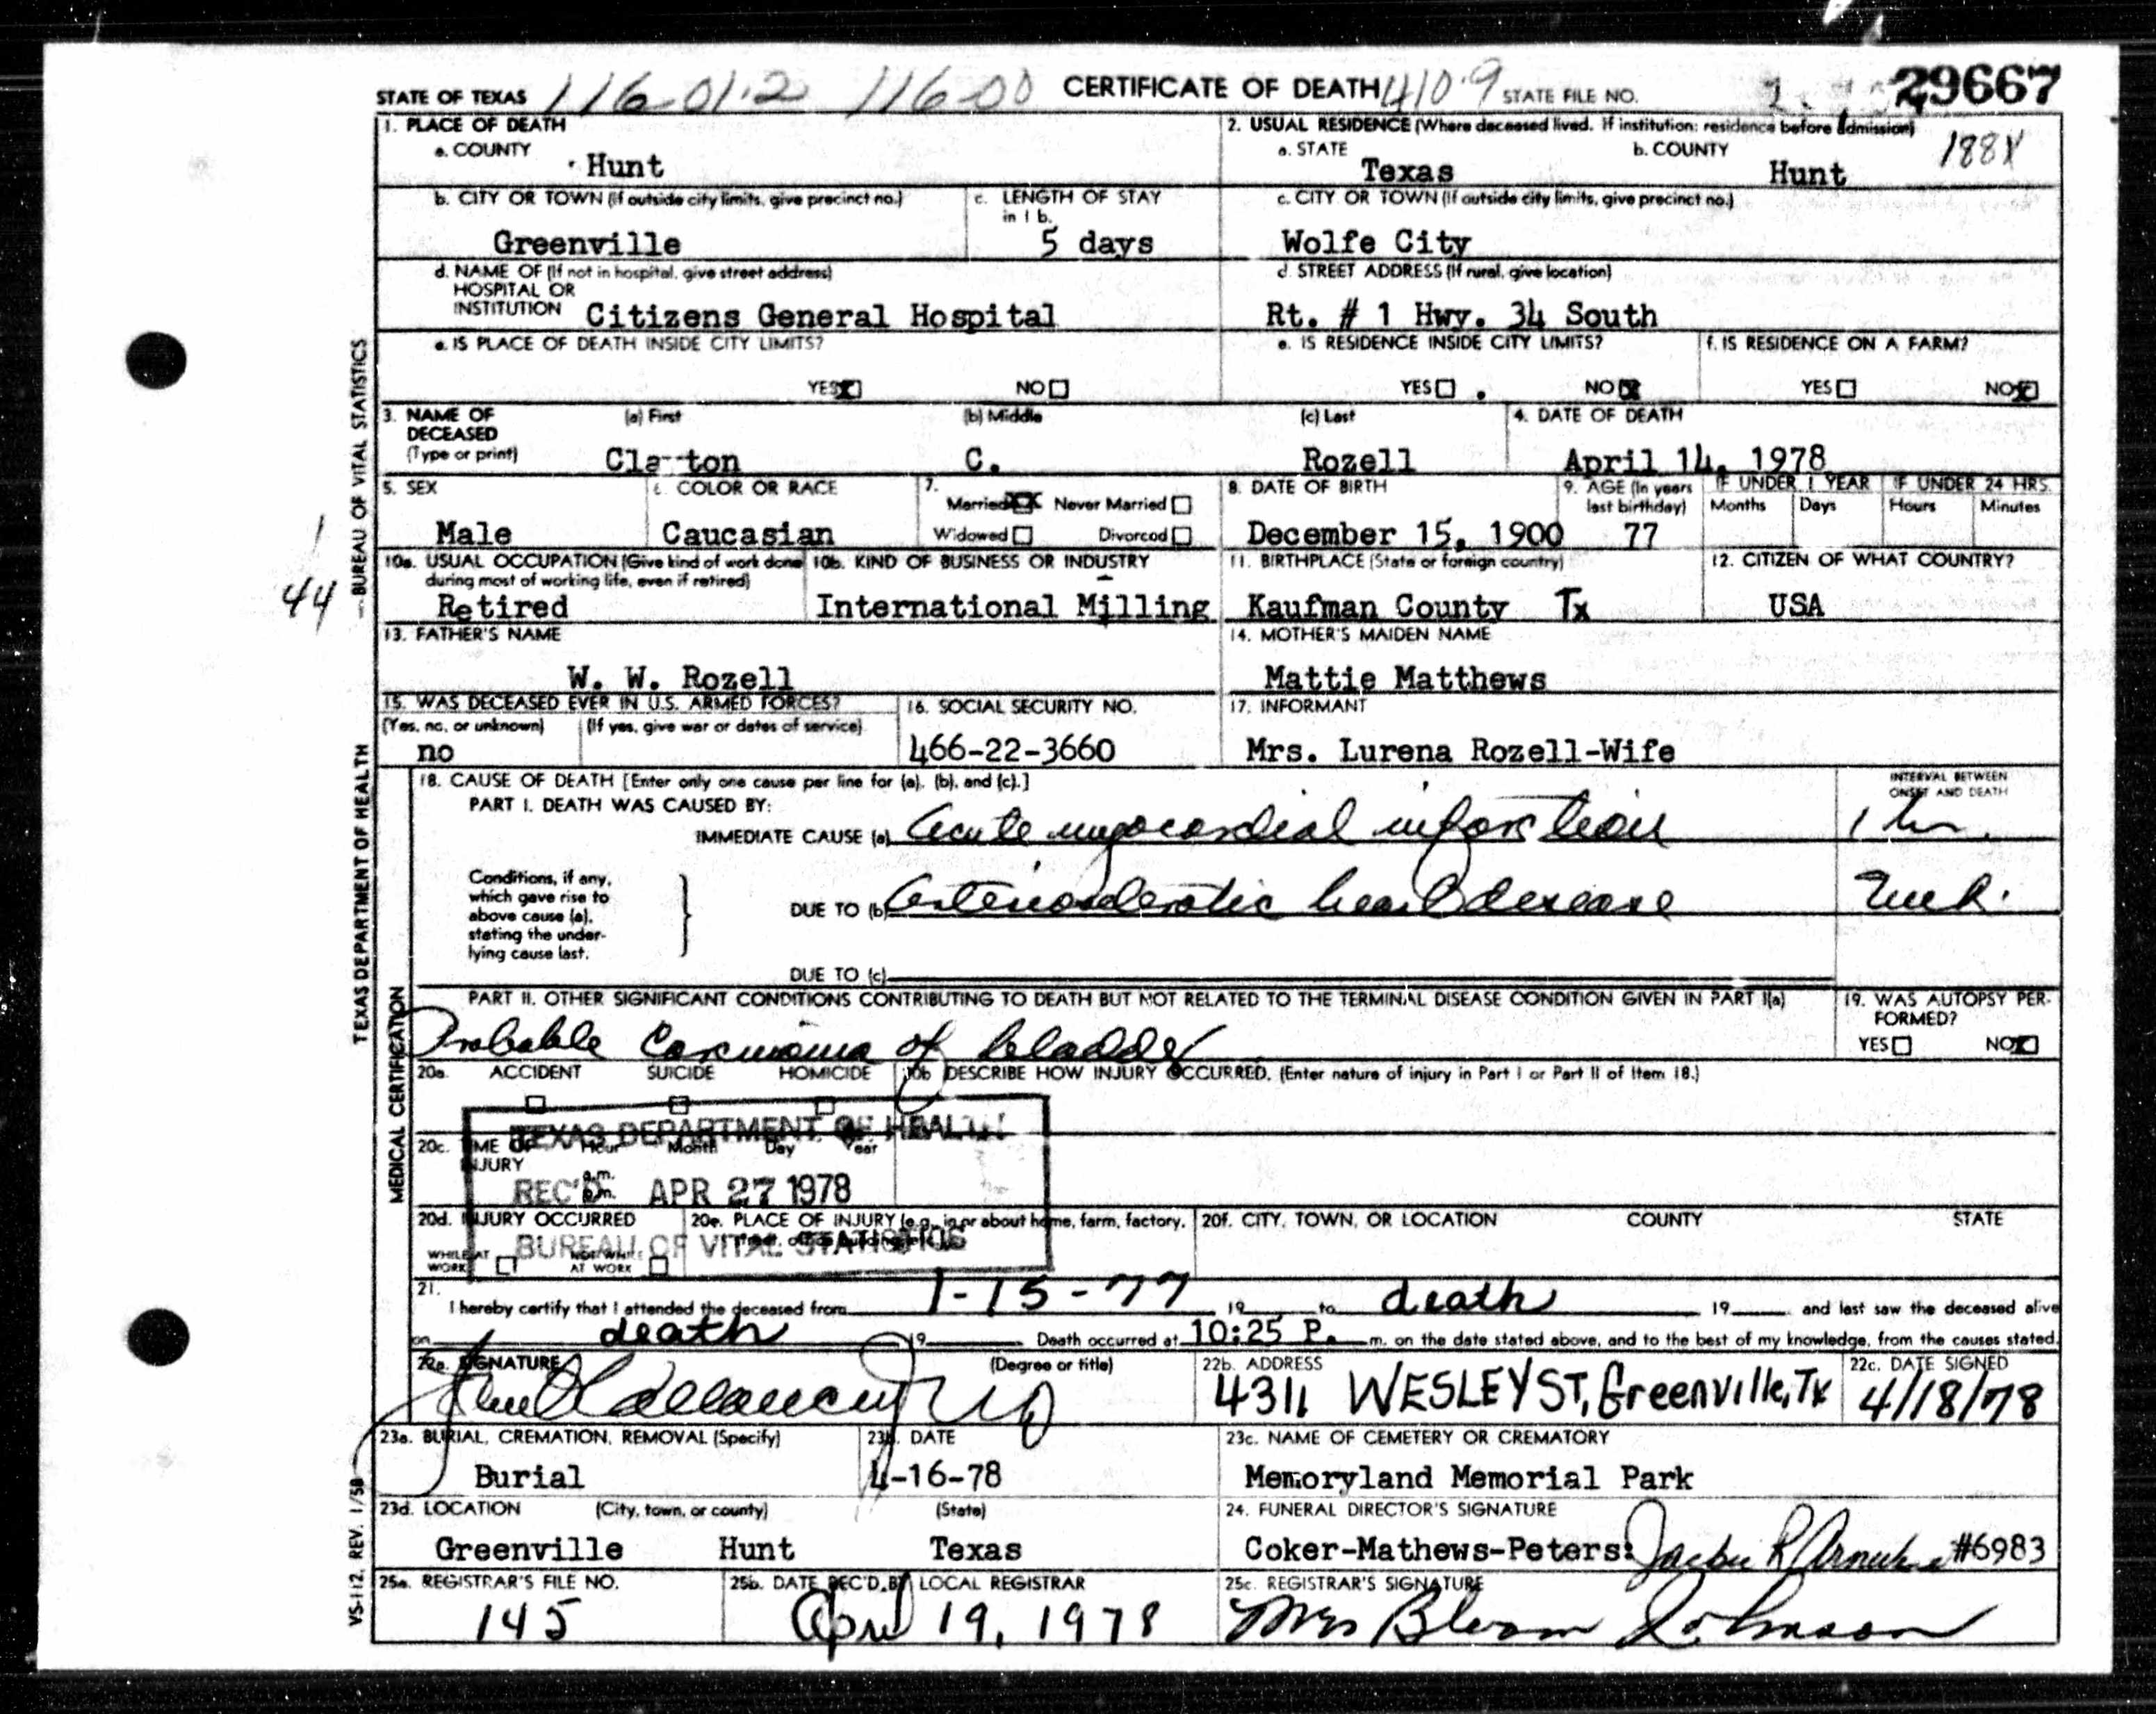 STATE OF TEXAS 116-01.2 116-00 CERTIFICATE OF DEATH 410.9 STATE FILE NO. 29667
1. PLACE OF DEATH
a. COUNTY
Hunt
2. USUAL RESIDENCE (Where deceased lived. If institution: residence before admission)
a. STATE b. COUNTY 188X
Texas Hunt
b. CITY OR TOWN (if outside city limits, give precinct no.) c. LENGTH OF STAY in 1 b.
Greenville 5 days
c. CITY OR TOWN (If outside city limits, give precinct no.)
Wolfe City
d. NAME OF (If not in hospital, give street address)
HOSPITAL OR
INSTITUTION Citizens General Hospital
d. STREET ADDRESS (If rural, give location)
Rt. # 1 Hwy. 34 South
e. IS PLACE OF DEATH INSIDE CITY LIMITS?
YES NO
e. IS RESIDENCE INSIDE CITY LIMITS?
YES NO
f. IS RESIDENCE ON A FARM?
YES NO
3. NAME OF DECEASED (Type or print) (a) First (b) Middle (c) Last
C. Rozell
4. DATE OF DEATH
April 14, 1978
5. SEX
Male
6. COLOR OR RACE
Caucasian
7.
Married Never Married
Widowed Divorced
8. DATE OF BIRTH
December 15, 1900
9. AGE (In years last birthday)
77
IF UNDER 1 YEAR IF UNDER 24 HRS.
Months Days Hours Minutes
10a. USUAL OCCUPATION (Give kind of work done during most of working life, even if retired)
Retired
10b. KIND OF BUSINESS OR INDUSTRY
International Milling
11. BIRTHPLACE (State or foreign country)
Kaufman County Tx
12. CITIZEN OF WHAT COUNTRY?
USA
44
13. FATHER'S NAME
W. W. Rozell
14. MOTHER'S MAIDEN NAME
Mattie Matthews
15. WAS DECEASED EVER IN U.S. ARMED FORCES?
(Yes, no, or unknown) (If yes, give war or dates of service)
no
16. SOCIAL SECURITY NO.
466-22-3660
17. INFORMANT
Mrs. Lurena Rozell-Wife
18. CAUSE OF DEATH [Enter only one cause per line for (a), (b), and (c).]
PART I. DEATH WAS CAUSED BY:
INTERVAL BETWEEN ONSET AND DEATH
IMMEDIATE CAUSE (a) Acute myocardial infarction 1 hr.
Conditions, if any, which gave rise to above cause (a), stating the underlying cause last.
DUE TO (b) Arteriosclerotic heart disease Unk.
DUE TO (c)
PART II. OTHER SIGNIFICANT CONDITIONS CONTRIBUTING TO DEATH BUT NOT RELATED TO THE TERMINAL DISEASE CONDITION GIVEN IN PART I(a)
Probable Carcinoma of bladder
19. WAS AUTOPSY PERFORMED?
YES NO
20a. ACCIDENT SUICIDE HOMICIDE
20b DESCRIBE HOW INJURY OCCURRED. (Enter nature of injury in Part I or Part II of Item 18.)
TEXAS DEPARTMENT OF HEALTH
20c. TIME OF INJURY Hour Month Day Year
a.m.
p.m.
REC'D APR 27 1978
20d. INJURY OCCURRED
WHILE AT WORK NOT WHILE AT WORK
20e. PLACE OF INJURY (e.g., in or about home, farm, factory, street, office building, etc.)
BUREAU OF VITAL STATISTICS
20f. CITY, TOWN, OR LOCATION COUNTY STATE
21.
I hereby certify that I attended the deceased from 1-15-77 19 to death 19 and last saw the deceased alive
on death 19 Death occurred at 10:25 P. m. on the date stated above, and to the best of my knowledge, from the causes stated.
22a. SIGNATURE (Degree or title)
MD
22b. ADDRESS
4311 WESLEY ST, Greenville, Tx
22c. DATE SIGNED
4/18/78
23a. BURIAL, CREMATION, REMOVAL (Specify)
Burial
23b. DATE
4-16-78
23c. NAME OF CEMETERY OR CREMATORY
Memoryland Memorial Park
23d. LOCATION (City, town, or county) (State)
Greenville Hunt Texas
24. FUNERAL DIRECTOR'S SIGNATURE
Coker-Mathews-Peters: #6983
25a. REGISTRAR'S FILE NO.
145
25b. DATE REC'D BY LOCAL REGISTRAR
April 19, 1978
25c. REGISTRAR'S SIGNATURE
Mrs Bloom Johnson
TEXAS DEPARTMENT OF HEALTH — BUREAU OF VITAL STATISTICS
MEDICAL CERTIFICATION
VS-112, REV. 1/58